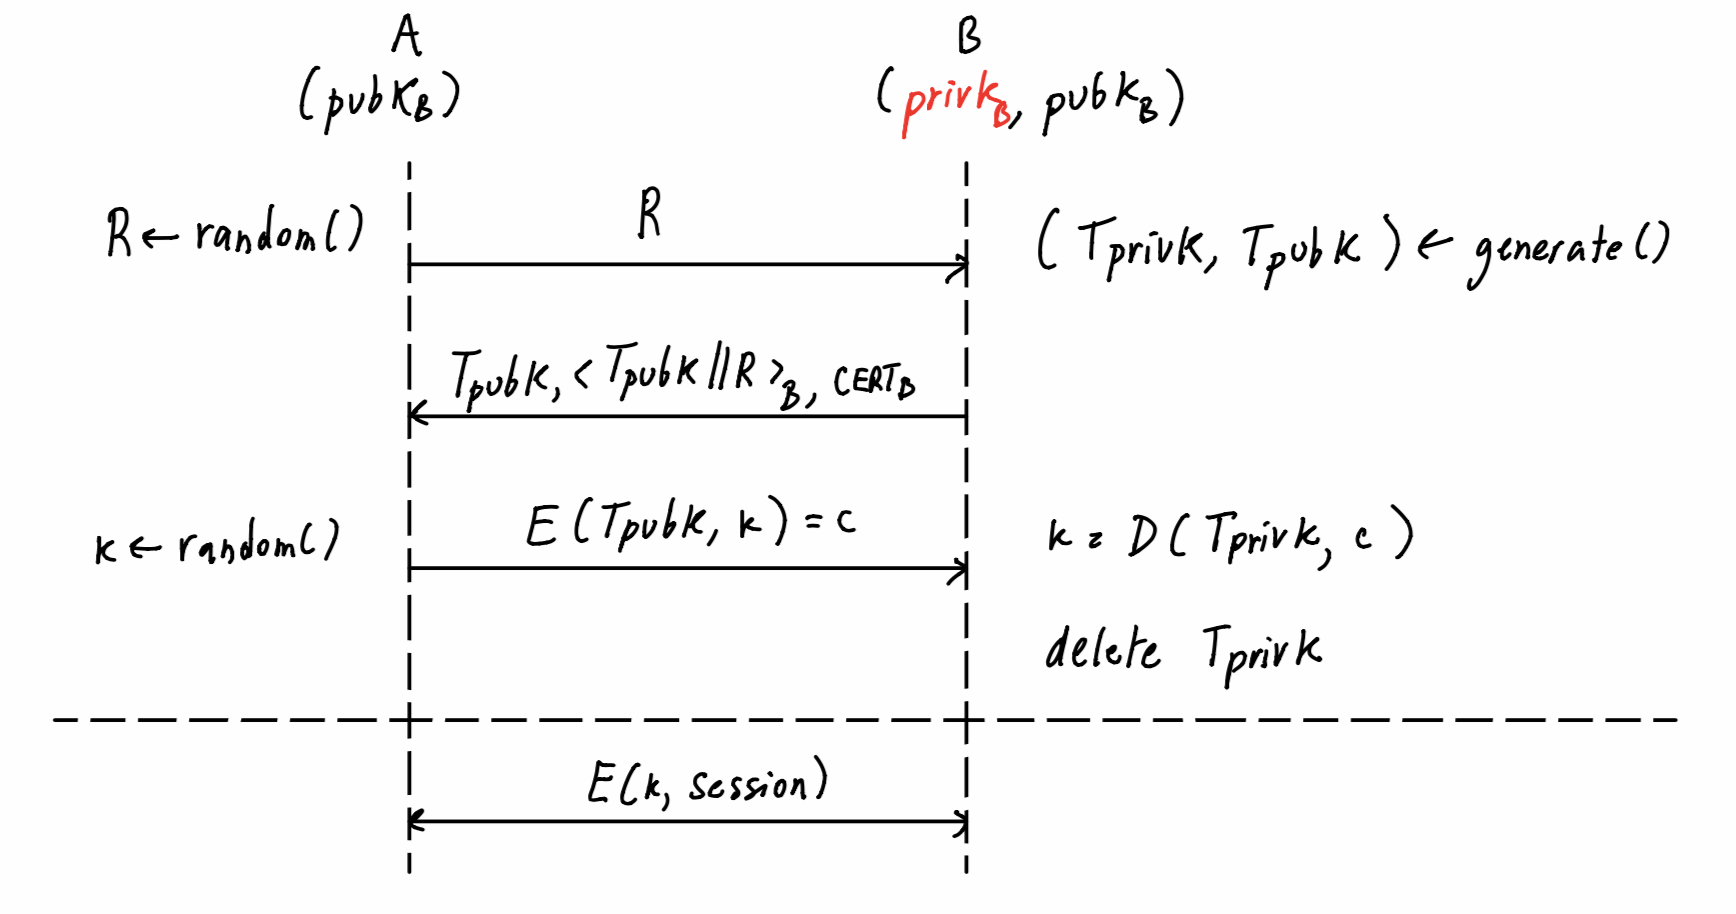 A
B
(pubK_B)
(privk_B, pubk_B)
R ← random()
R
(Tprivk, Tpubk) ← generate()
Tpubk, <Tpubk||R>_B, CERT_B
k ← random()
E(Tpubk, k) = c
k = D(Tprivk, c)
delete Tprivk
E(k, session)